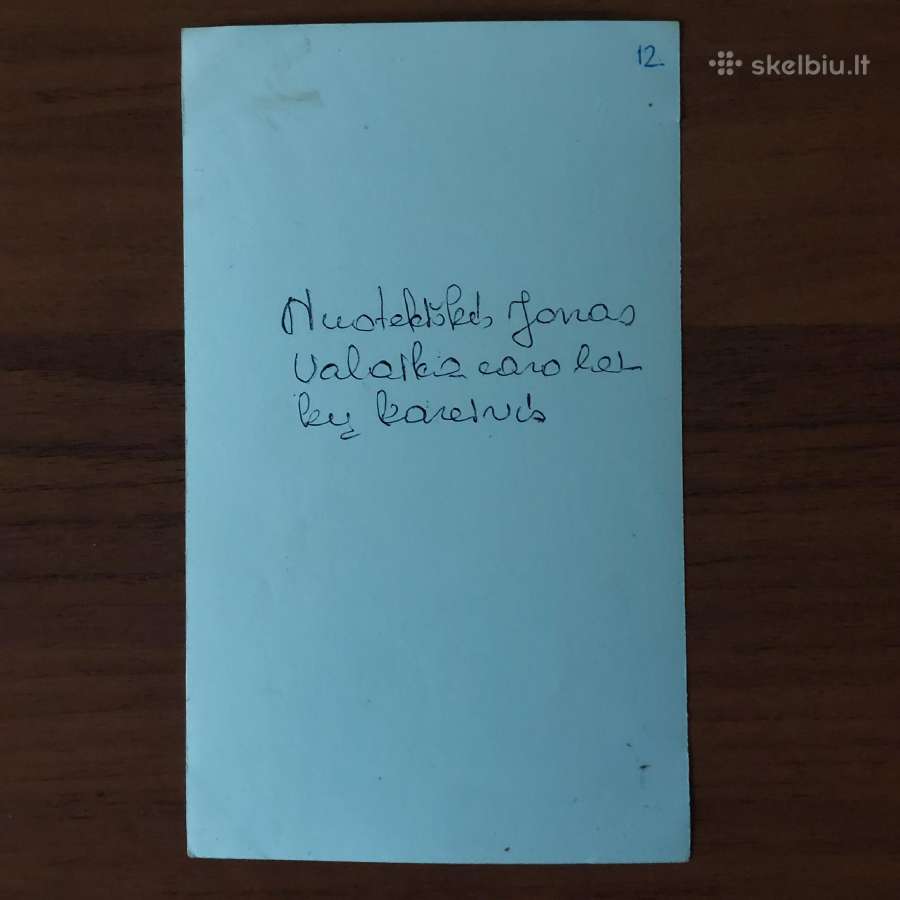 12.
skelbiu.lt
Jonas
Valaska caro lai
kų kareivis